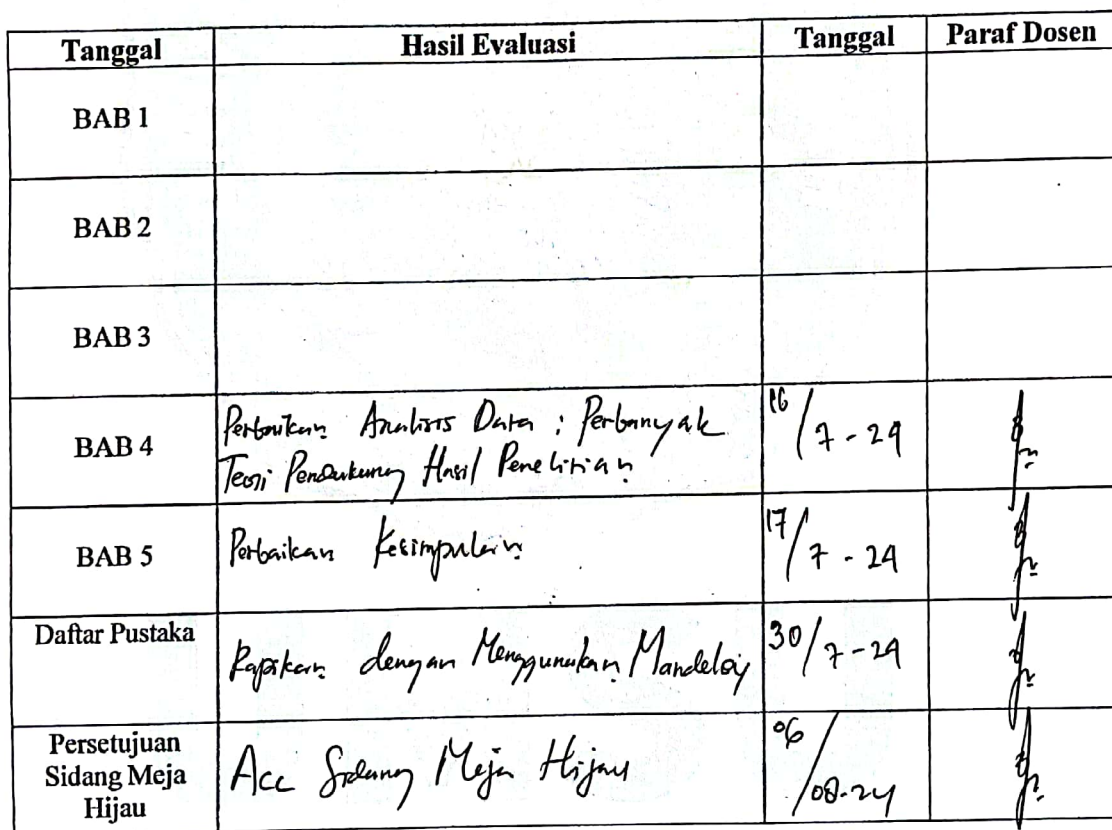 Tanggal Hasil Evaluasi Tanggal Paraf Dosen
BAB 1
BAB 2
BAB 3
BAB 4 Perbaikan Analisis Data ; Perbanyak 16/7-24
Teori Pendukung Hasil Penelitian
BAB 5 Perbaikan Kesimpulan 17/7-24
Daftar Pustaka
Rapikan dengan Menggunakan Mandeley 30/7-24
Persetujuan
Sidang Meja Acc Sidang Meja Hijau 06/08-24
Hijau